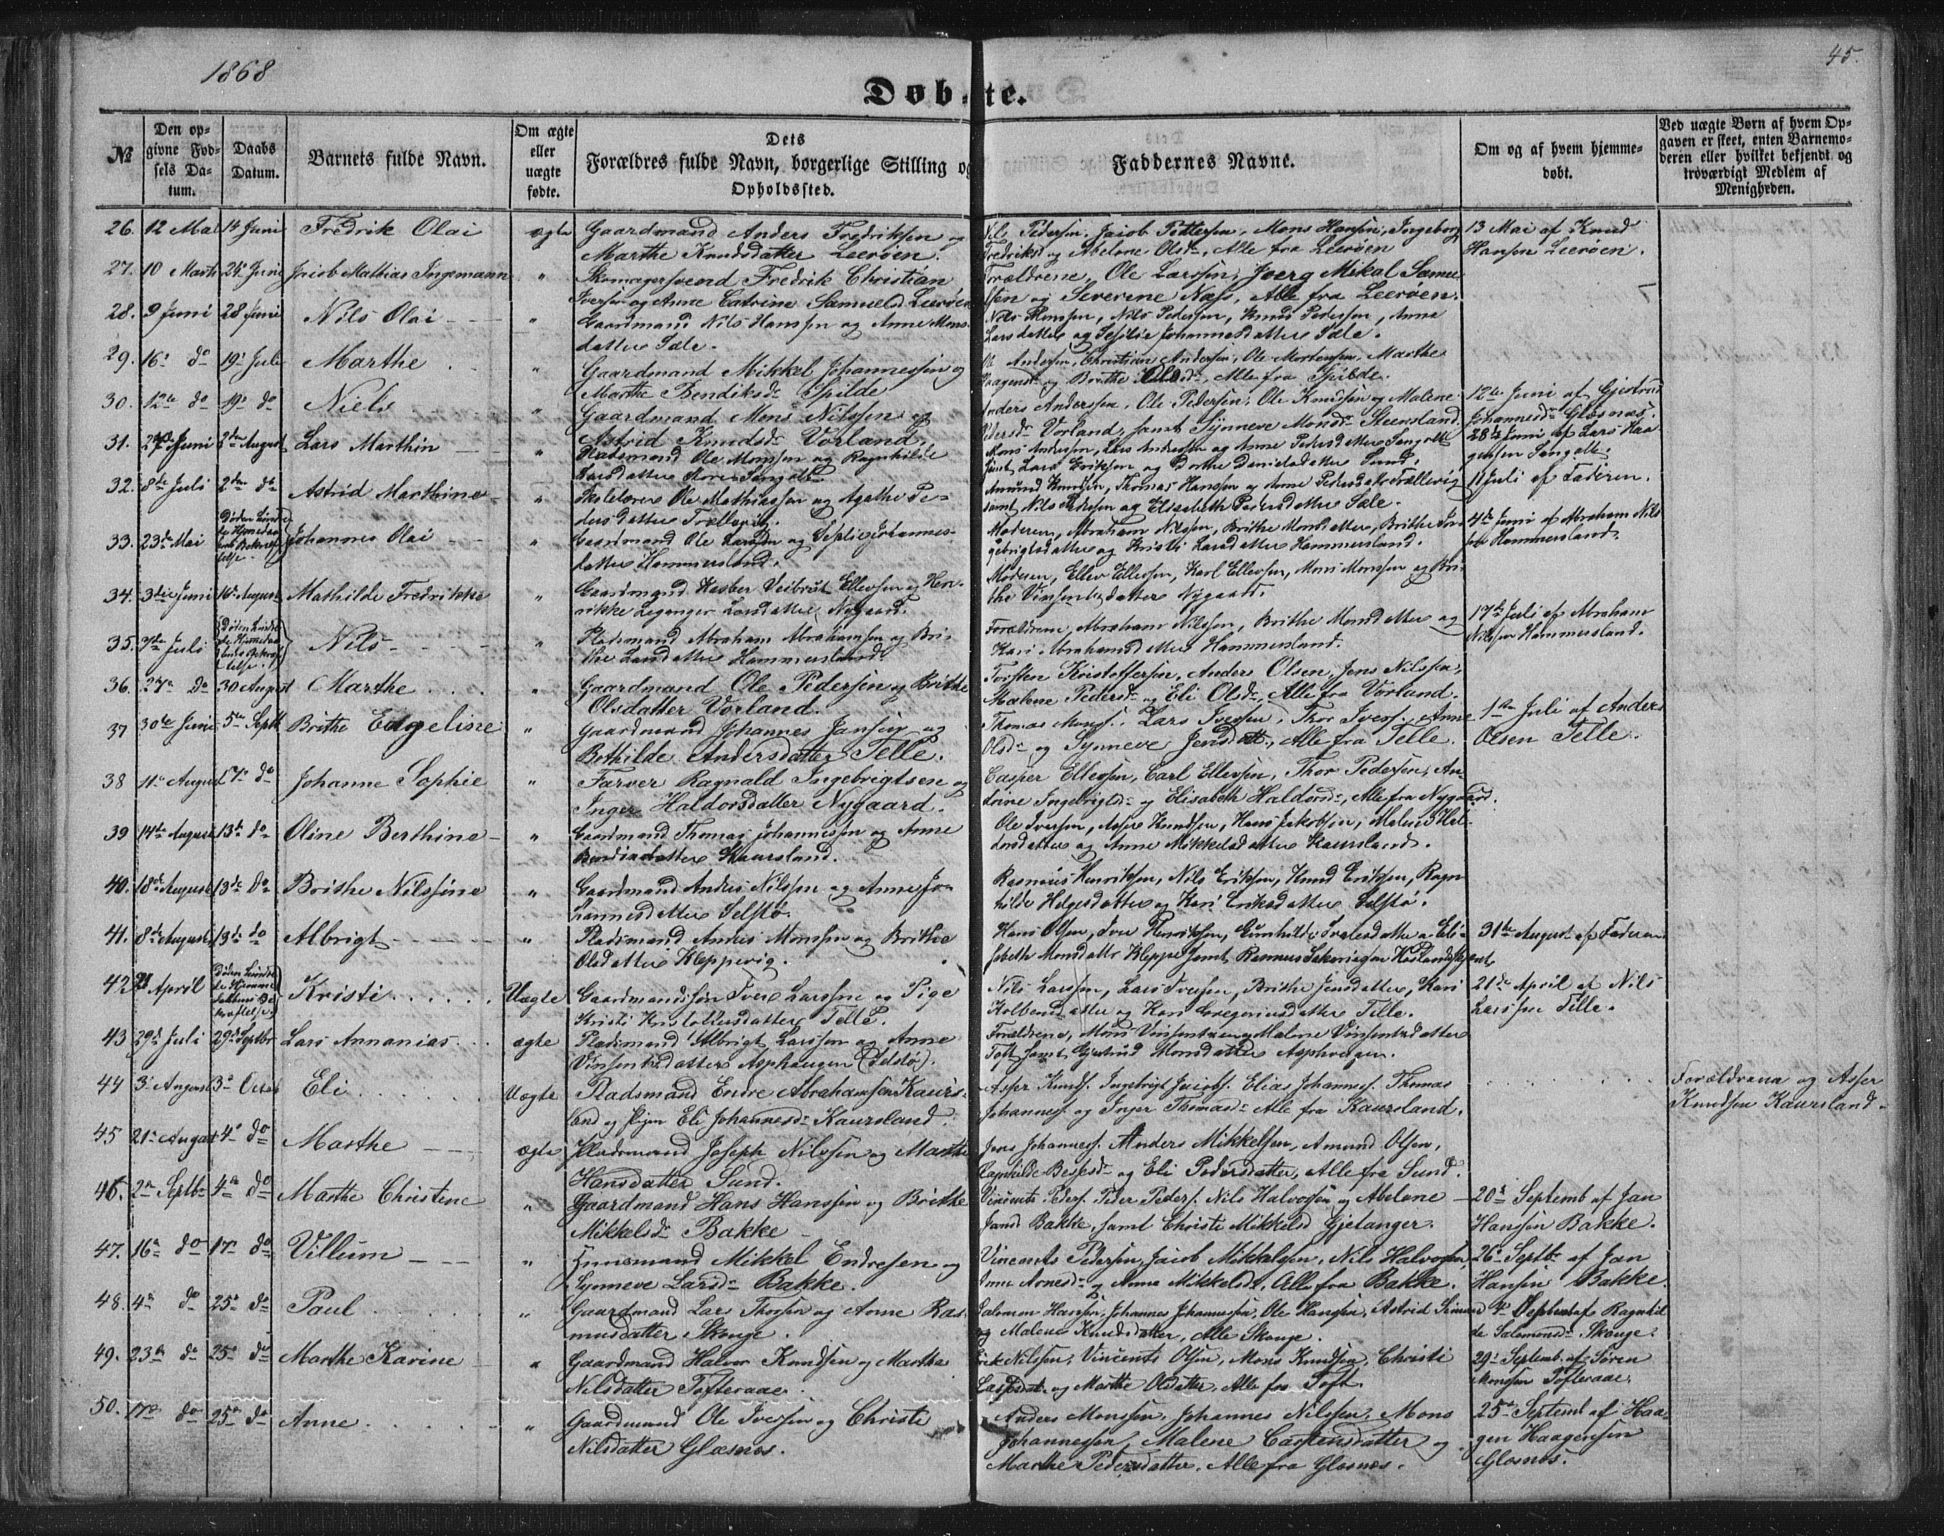 1868
45.
Døbte.
№
Den opgivne Fødsels Datum.
Daabs Datum.
Barnets fulde Navn.
Om ægte eller uægte fødte.
Dets Forældres fulde Navn, borgerlige Stilling og Opholdssted.
Faddernes Navne.
Om og af hvem hjemmedøbt.
Ved uægte Børn af hvem Opgaven er skeet, enten Barnemoderen eller hvilket bekjendt og troværdigt Medlem af Menigheden.
26. 12 Mai 14 Juni Fredrik Olai ægte Gaardmand Anders Fredriksen og
Marthe Knudsdatter Leerøen.
Nils Pedersen, Jacob Pettersen, Mons Hansen, Ingeborg
Fredriksd og Abelone Olsd, Alle fra Leerøen
13 Mai af Knud
Hansen Leerøen.
27. 10 Marts 24 Juni Jacob Mathias Ingemann " Skomagersvend Fredrik Christian
Iversen og Anne Catrine Samuelsd Leerøen
Forældrene, Ole Larssen, Joerg Mikal Samuelsen og Severene Næss, Alle fra Leerøen.
28. 9 Juni 28 Juni Nils Olai " Gaardmand Nils Hanssen og Anne Monsdatter Sæle.
Nils Hanssen, Nils Pedersen, Knud Pedersen, Anne
Larsdatter og Johannesdatter Sæle.
29. 16 do 19 Juli Marthe " Gaardmand Mikkel Johannessen og
Marthe Bendiksd Spilde
Ole Andersen, Christian Andersen, Ole Mortensen, Marthe
Haagensd og Brithe Olsd, Alle fra Spilde.
30. 12te do 19 do Niels " Gaardmand Mons Nilssen og
Astrid Knudsd Vorland.
Anders Anderssen, Ole Pedersen, Ole Knudsen og Malene
Pedersd Vorland, samt Synneve Monsd Steensland.
12te Juni af Gjertrud
Johannesd Glæsnæs.
31. 27 Juni 2den August Lars Marthin " Ole Monssen og Ragnhilde
Larsdatter
Mons Andersen, Lars Andersen og Anne Pedersdatter
samt Lars Eriksen og Dorthe Danielsdatter Sund.
28de Juni af Lars Haagensen
32. 8de Juli 2den do Astrid Marthine " Skolelærer Ole Mathiassen og Agathe Pedersdatter Trællevig.
Amund Knudsen, Thomas Hanssen og Anne Pedersdatter Trællevig
samt Nils Pedersen og Elisabeth Pedersdatter Sæle.
11 Juli af Faderen.
33. 23de Mai Johannes Olai " Gaardmand Ole Larsen og Johannesdatter Hammersland.
Moderen, Abraham Nilsen, Brithe Monsdatter, Brithe Ingebrigtsdatter og Kristi Larsdatter Hammersland.
4de Juni af Abraham Nilssen Hammersland.
34. 3die Juni 16 August Mathilde Fredrikke " Gaardmand Kasber Ellevsen og Henrikke Leganger Larsdatter Nygaard.
Moderen, Ellev Ellevsen, Karl Ellevsen, Mons Monssen og Brithe Vinsentsdatter Nygaard.
35. 7de Juli Nils " Pladsmand Abraham Abrahamsen og Brithe Larsdatter Hammersland.
Forældrene, Abraham Nilssen, Brithe Monsdatter og
Kari Abrahamsdatter Hammersland.
17de Juli af Abraham
Nilssen Hammersland.
36. 27 do 30 August Marthe " Gaardmand Ole Pedersen og Brithe
Olsdatter Vorland.
Torsten Kristoffersen, Anders Olsen, Jens Nilssen,
Malene Pedersd og Eli Olsd, Alle fra Vorland.
37 30te Juni 5te Septb Brithe Engeline " Gaardmand Johannes Jansen og
Bothilde Andersdatter Telle.
Thomas Monss. Lars Iversen, Thor Ivers. Anne
Olsd og Synneve Jensdatt., Alle fra Telle.
1ste Juli af Anders
Olsen Telle.
38 11 August 7 do Johanne Sophie " Farver Ragnald Ingebrigtsen og
Inger Haldorsdatter Nygaard.
Casper Ellevsen, Carl Ellevsen, Thor Pedersen, Andrine Ingebrigtsd og Elisabeth Haldorsd, Alle fra Nygaard.
39 14de August 13de do Oline Berthine " Gaardmand Thomas Johannessen og Anne
Kaursland.
Ole Iversen, Asser Knudsen, Hans Jakobsen, Malene
og Anne Mikkelsdatter Kaursland.
40. 18de August 13de do Brithe Nilssine " Gaardmand Anders Nilssen og Anne Johannesdatter Selstø.
Rasmus Henrikssen, Nils Erikssen, Knud Erikssen, Ragnhilde Helgesdatter og Kari Eriksdatter Selstø.
41. 8de August 13de do Albrigt " Pladsmand Anders Monssen og Brithe
Olsdatter Kleppevig.
Hans Olsen, Iver Henrikssen, Gunhilde Iversdatter og Elisabeth Monsdatter Kleppe samt Rasmus
31te August af Faderen
42 21 April Kristi Uægte Gaardmandssøn Iver Larssen og Pige
Kristi Kristoffersdatter Telle.
Nils Larssen, Lars Iversen, Brithe Jensdatter, Kari
Kolbensdatter og Kari Gregoriusdatter Telle.
21de April af Nils
Larssen Telle.
43 29de Juli 29de Septbr Lars Annanias ægte Pladsmand Albrigt Larssen og Anne
Vinsentsdatter Asphaugen (Selstø).
Forældrene, Mons Vinsentsen og Malene Vinsentsdatter
Toft samt Gjertrud Monsdatter Asphougen.
44 3 August 3 Octob Eli Uægte Pladsmand Endre Abrahamsen Kaursland og Pigen Eli Johannesd Kaursland.
Asser Knuds. Ingebrigt Jacobs. Elias Johannes. Thomas
Johannes. og Inger Thomasd Alle fra Kaursland.
Forældrene og Asser
Knudsen Kaursland.
45 21 August 4 do Marthe ægte Pladsmand Joseph Nilssen og Marthe
Hansdatter Sund.
Jens Johannes. Anders Mikkelsen, Amund Olsen,
Ragnhilde og Eli Pedersdatter, Alle fra Sund.
46. 2 Septbr 4 do Marthe Christine " Gaardmand Hans Hanssen og Brithe
Mikkelsd Bakke
Vincents Peders. Peder Peders. Nils Halvorsen og Abelone
Jansd Bakke, samt Christi Mikkelsd Gjetanger.
20 Septemb af Jan
Hansen Bakke.
47. 16 do 17 do Villum " Huusmand Mikkel Endresen og
Synneve Larsd Bakke.
Vincents Pedersen, Jacob Mikkelsen, Nils Halvorsen,
Anne Arnesd og Anne Mikkelsd, Alle fra Bakke.
26 Septbr af Jan
Hansen Bakke.
48. 4 do 25 do Paul " Gaardmand Lars Thorsen og Anne Rasmusdatter Skouge.
Salomon Hansen, Johannes Johannessen, Ole Hansen, Astrid
og Malene Knudsdatter, Alle Skouge.
4 September af Ragnhilde Salomonsd Skouge.
49. 23 do 25 do Marthe Karine " Gaardmand Halvor Knudsen og Marthe
Nilsdatter Tofteraae.
Erik Nilssen, Vincents Olsen, Mons Knudsen, Christi
og Marthe Olsdatter, Alle fra Toft.
29 Septemb. af Søren
Monsen Tofteraae.
50. 17 do 25 do Anne " Gaardmand Ole Iversen og Christi
Nilsdatter Glæsnæs.
Anders Monssen, Johannes Nilssen, Mons
Johannessen, Malene Carstensdatter og
Marthe Pedersdatter, Alle fra Glæsnæs.
25 Septemb af Haagen Haagensen
Glæsnæs.